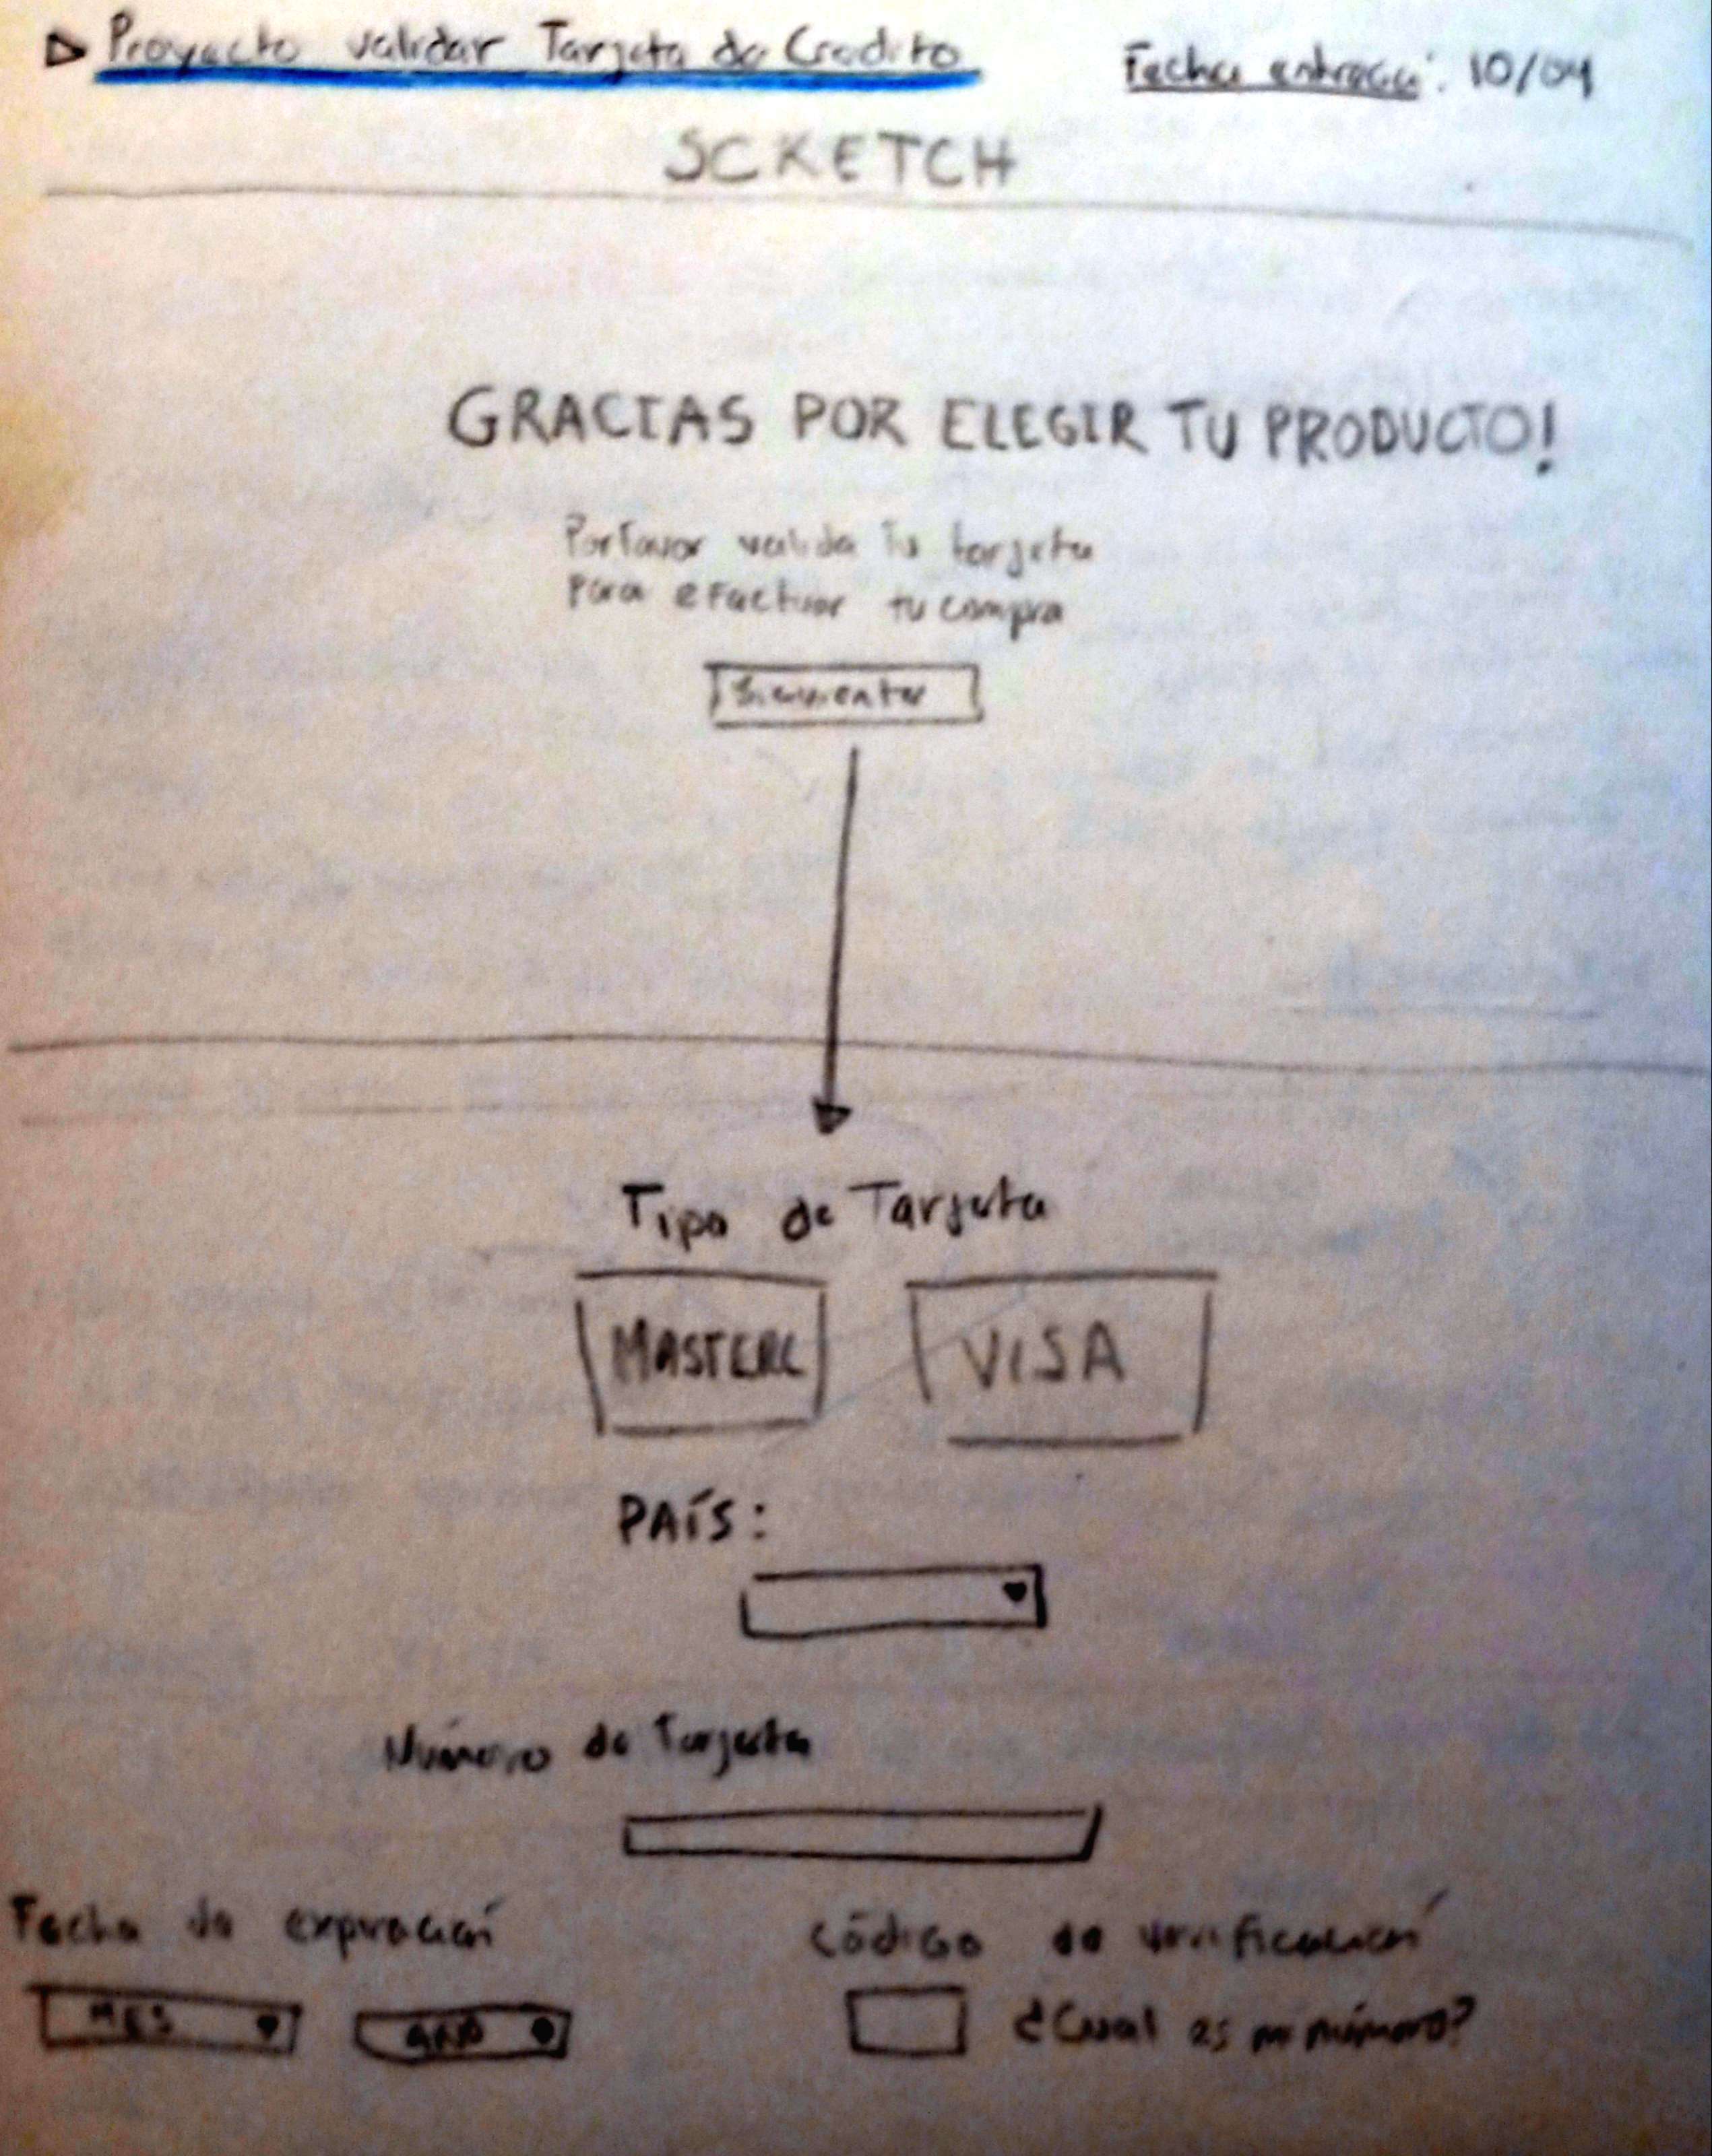 Proyecto validar Tarjeta de Credito
Fecha entrega: 10/04
SCKETCH
GRACIAS POR ELEGIR TU PRODUCTO!
Porfavor valida tu tarjeta
Para efectuar tu compra
Siguiente
Tipo de Tarjeta
MASTERC
VISA
PAÍS:
Número de Tarjeta
Fecha de expiración
Código de verificación
MES
AÑO
¿Cual es mi número?